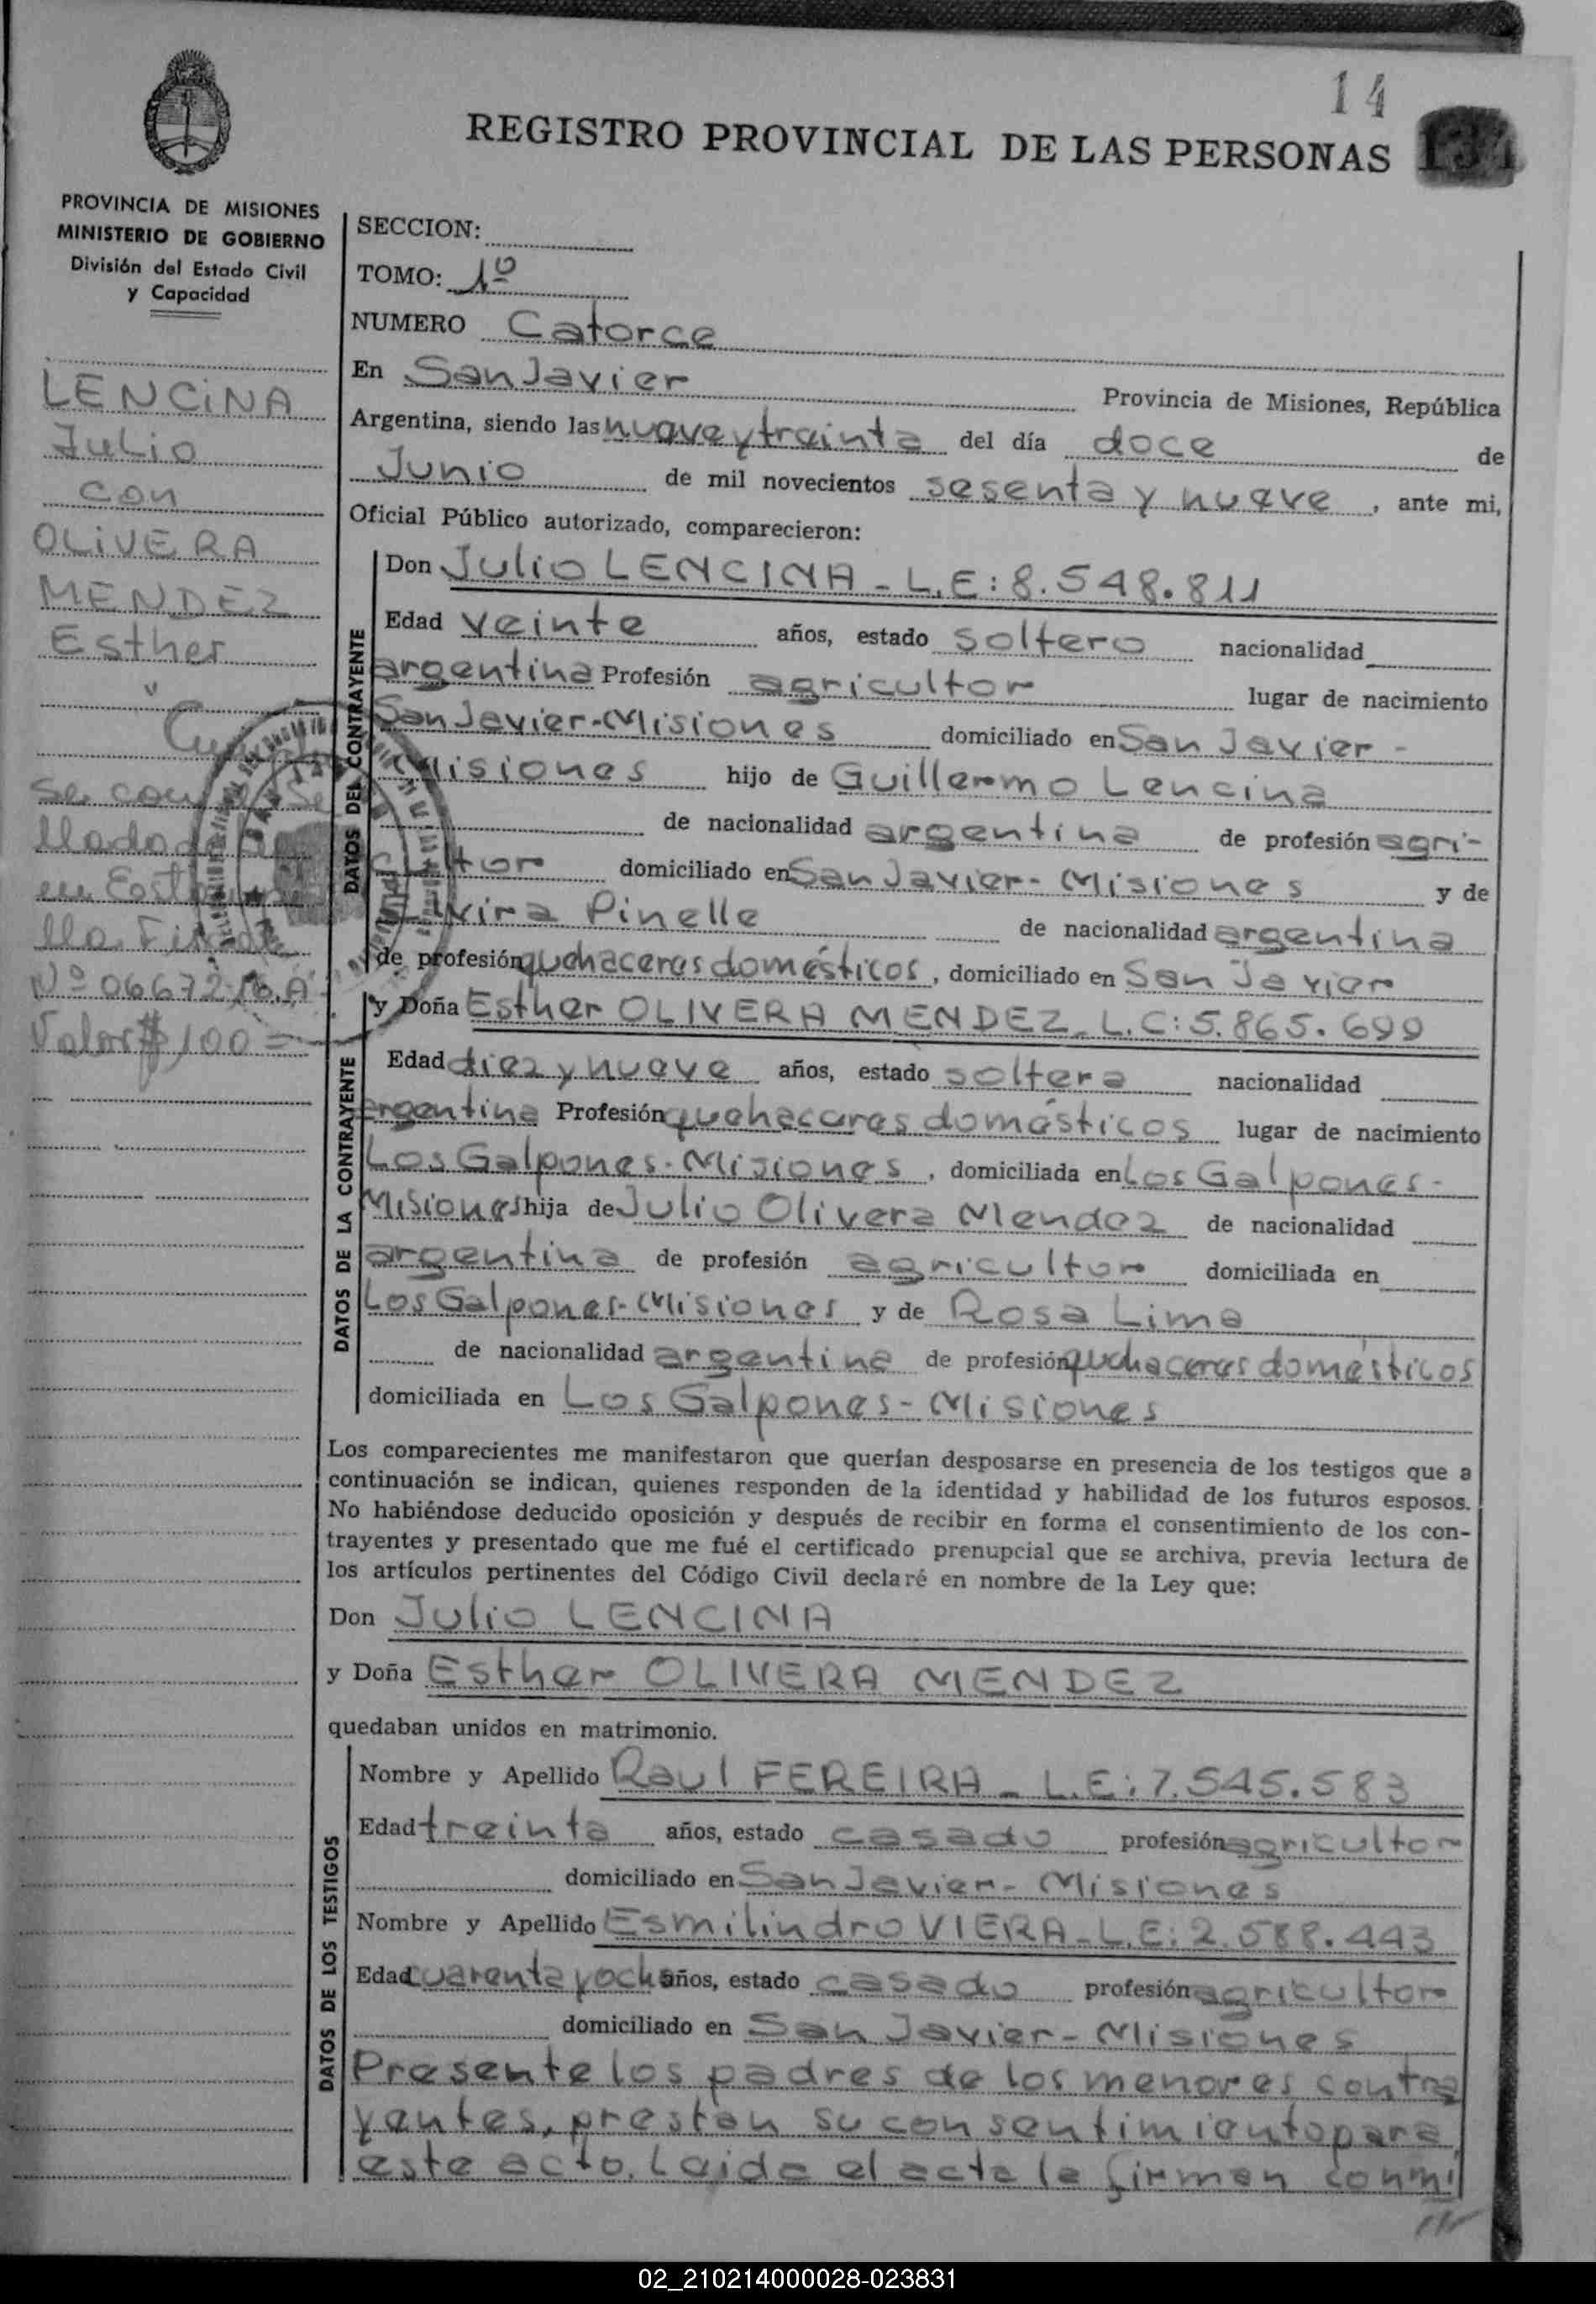 14
REGISTRO PROVINCIAL DE LAS PERSONAS
PROVINCIA DE MISIONES
MINISTERIO DE GOBIERNO
División del Estado Civil
y Capacidad
LENCINA
Julio
con
OLIVERA
MENDEZ
Esther
Se
llado
en
lla Fiscal
Nº 06672
Valor $ 100=
SECCION:
TOMO: 1º
NUMERO Catorce
En San Javier Provincia de Misiones, República
Argentina, siendo las nueve y treinta del día doce de
Junio de mil novecientos sesenta y nueve, ante mi,
Oficial Público autorizado, comparecieron:
DATOS DEL CONTRAYENTE
Don Julio LENCINA - L.E: 8.548.811
Edad veinte años, estado soltero nacionalidad
argentina Profesión agricultor lugar de nacimiento
San Javier-Misiones domiciliado en San Javier-
Misiones hijo de Guillermo Lencina
de nacionalidad argentina de profesión agri-
cultor domiciliado en San Javier-Misiones y de
Elvira Pinelle de nacionalidad argentina
de profesión quehaceres domésticos, domiciliado en San Javier
DATOS DE LA CONTRAYENTE
y Doña Esther OLIVERA MENDEZ - L.C: 5.865.699
Edad diez y nueve años, estado soltera nacionalidad
argentina Profesión quehaceres domésticos lugar de nacimiento
Los Galpones-Misiones, domiciliada en Los Galpones-
Misiones hija de Julio Olivera Mendez de nacionalidad
argentina de profesión agricultor domiciliada en
Los Galpones-Misiones y de Rosa Lima
de nacionalidad argentina de profesión quehaceres domésticos
domiciliada en Los Galpones-Misiones
Los comparecientes me manifestaron que querían desposarse en presencia de los testigos que a
continuación se indican, quienes responden de la identidad y habilidad de los futuros esposos.
No habiéndose deducido oposición y después de recibir en forma el consentimiento de los con-
trayentes y presentado que me fué el certificado prenupcial que se archiva, previa lectura de
los artículos pertinentes del Código Civil declaré en nombre de la Ley que:
Don Julio LENCINA
y Doña Esther OLIVERA MENDEZ
quedaban unidos en matrimonio.
DATOS DE LOS TESTIGOS
Nombre y Apellido Raul FEREIRA - L.E: 7.545.583
Edad treinta años, estado casado profesión agricultor
domiciliado en San Javier-Misiones
Nombre y Apellido Esmilindro VIERA - L.E: 2.588.443
Edad cuarenta y ocho años, estado casado profesión agricultor
domiciliado en San Javier-Misiones
Presente los padres de los menores contra
yentes, prestan su consentimiento para
este acto. Leida el acta la firman conmi
02_210214000028-023831